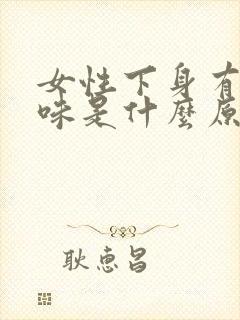 女性下身有
味是什麼原
耿惠昌